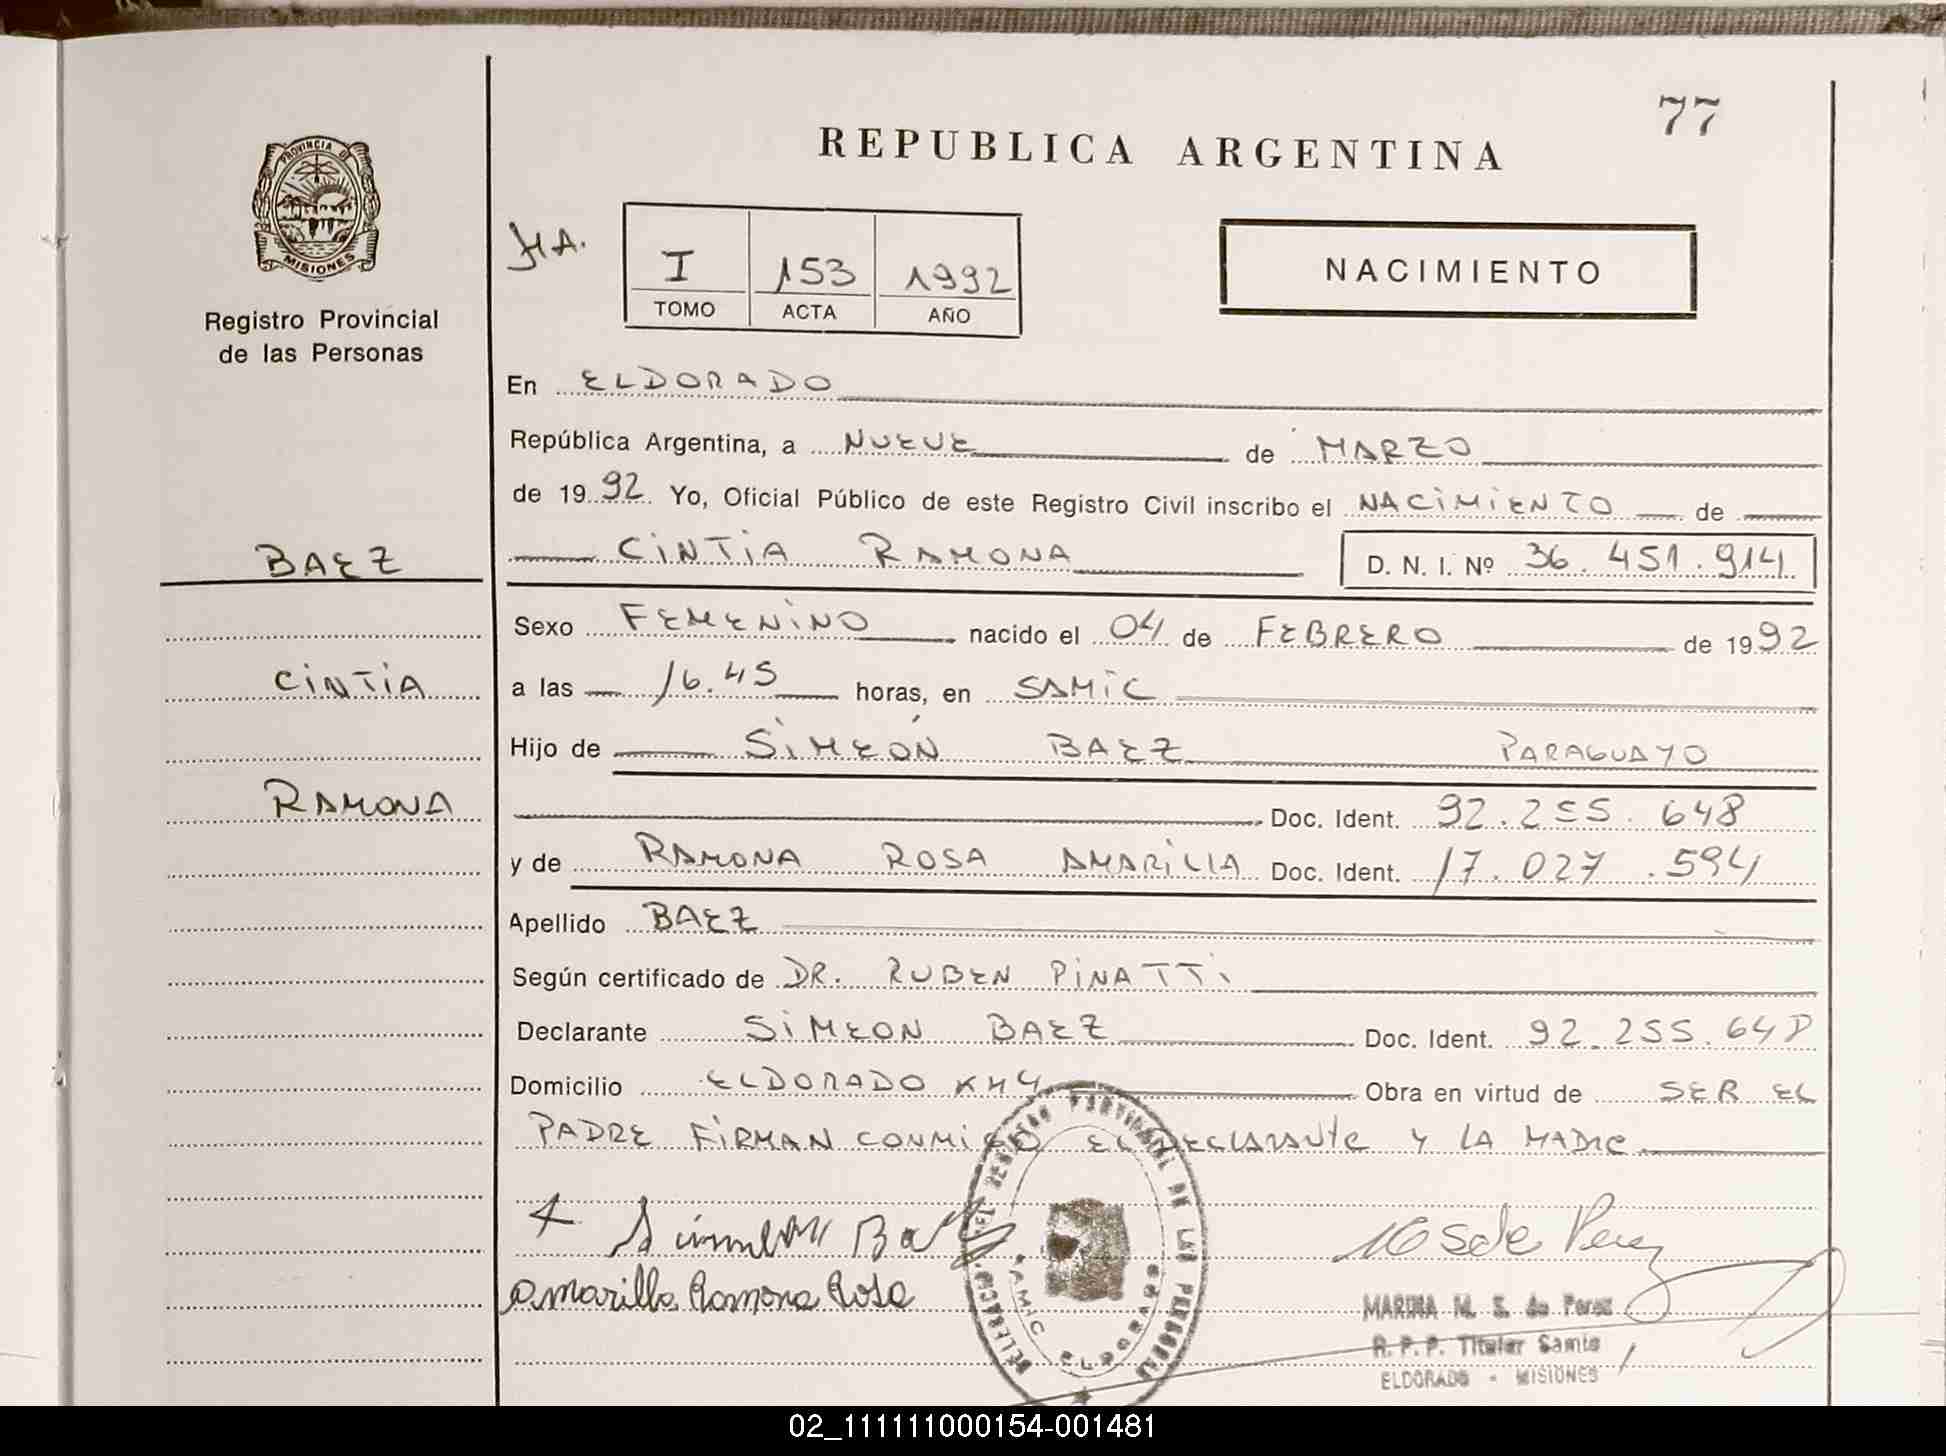 77
REPUBLICA ARGENTINA
PROVINCIA DE
MISIONES
Registro Provincial
de las Personas
I 153 1992
TOMO ACTA AÑO
NACIMIENTO
En ELDORADO
República Argentina, a NUEVE de MARZO
de 1992 Yo, Oficial Público de este Registro Civil inscribo el NACIMIENTO de
BAEZ
CINTIA RAMONA D. N. I. Nº 36.451.914
Sexo FEMENINO nacido el 04 de FEBRERO de 1992
CINTIA
a las 16.45 horas, en SAMIC
Hijo de SIMEÓN BAEZ PARAGUAYO
RAMONA
Doc. Ident. 92.255.648
y de RAMONA ROSA AMARILLA Doc. Ident. 17.027.594
Apellido BAEZ
Según certificado de DR. RUBEN PINATTI
Declarante SIMEON BAEZ Doc. Ident. 92.255.648
Domicilio ELDORADO KM4 Obra en virtud de SER EL
PADRE FIRMAN CONMIGO EL DECLARANTE Y LA MADRE
REGISTRO PROVINCIAL DE LAS PERSONAS
Amarilla Ramona Rosa
MARINA M. S. de Perez
R. P. P. Titular Samic
ELDORADO - MISIONES
02_111111000154-001481